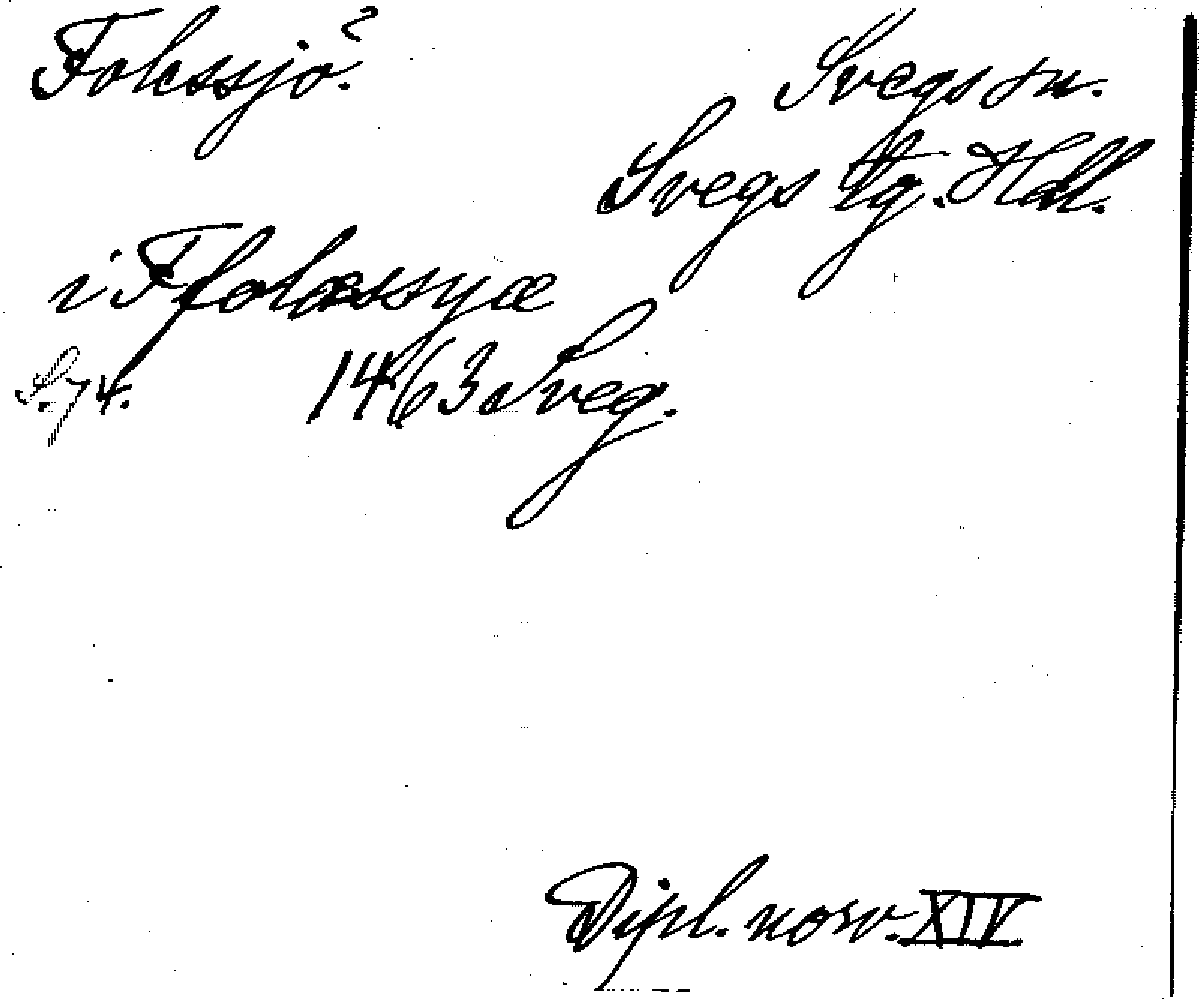 Folessjö.
Svegs sn.
Svegs tg. Hdl.
i Ffolæssyæ
S. 74. 1463 Sveg.
Dipl. norv. XIV